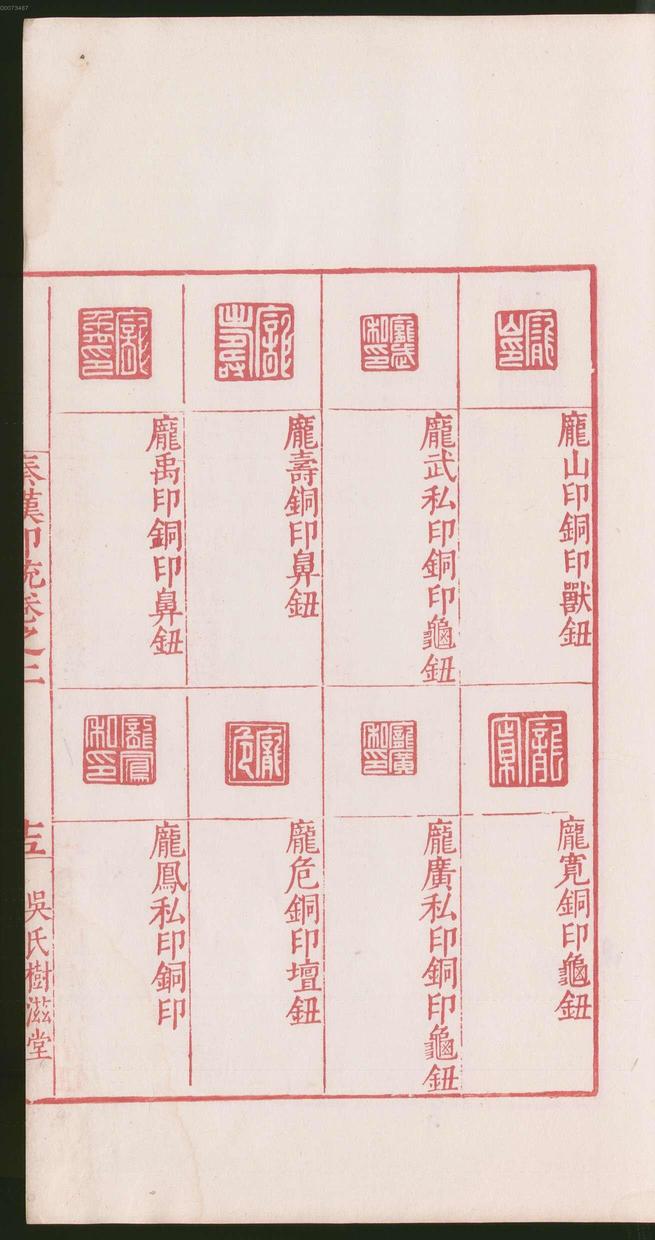 00073487
龐山印銅印獸鈕
龐武私印銅印龜鈕
龐壽銅印鼻鈕
龐禹印銅印鼻鈕
龐寬銅印龜鈕
龐廣私印銅印龜鈕
龐危銅印壇鈕
龐鳳私印銅印
秦漢印統卷之二
吳氏樹滋堂